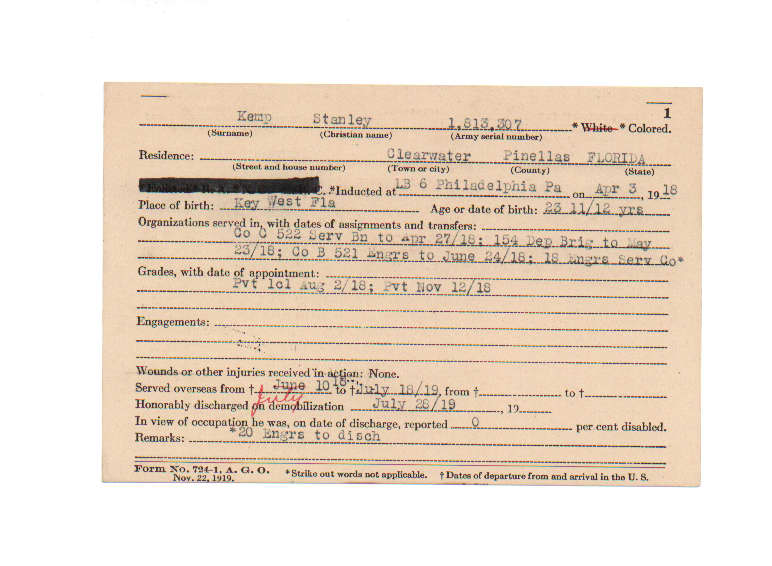 1
Kemp Stanley 1,813,307 * White * Colored.
(Surname) (Christian name) (Army serial number)
Residence: Clearwater Pinellas FLORIDA
(Street and house number) (Town or city) (County) (State)
*Inducted at LB 6 Philadelphia Pa on Apr 3, 1918
Place of birth: Key West Fla Age or date of birth: 23 11/12 yrs
Organizations served in, with dates of assignments and transfers:
Co C 522 Serv Bn to Apr 27/18; 154 Dep Brig to May
23/18; Co B 521 Engrs to June 24/18; 18 Engrs Serv Co*
Grades, with date of appointment:
Pvt 1cl Aug 2/18; Pvt Nov 12/18
Engagements:
Wounds or other injuries received in action: None.
Served overseas from † June 10 18 to † July 18/19, from † to †
July
Honorably discharged on demobilization July 28/19, 19
In view of occupation he was, on date of discharge, reported 0 per cent disabled.
Remarks: *20 Engrs to disch
Form No. 724-1, A. G. O. *Strike out words not applicable. † Dates of departure from and arrival in the U. S.
Nov. 22, 1919.